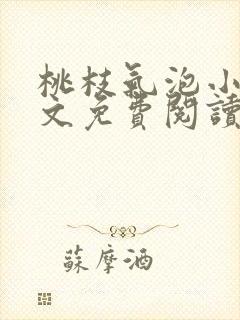 桃枝氣泡小
文免費閱讀
蘇摩酒